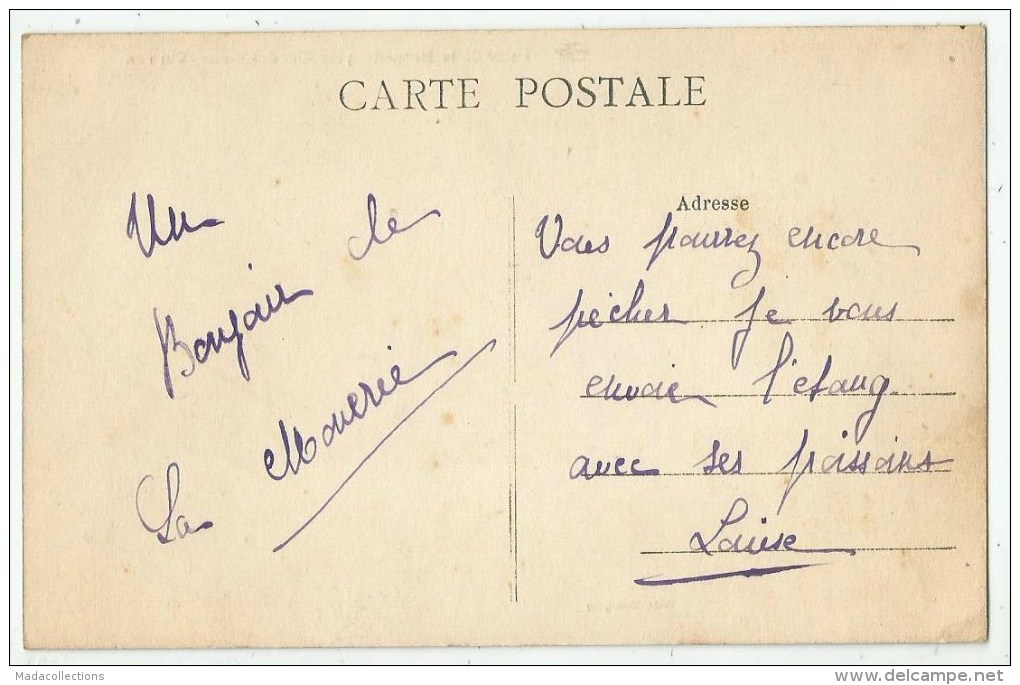 CARTE POSTALE
Un
Bonjour de
La Monerie
Adresse
Vous pourrez encore
pêcher je vous
envoie l'étang
avec ses poissons
Louise
Madacollections
delcampe.net